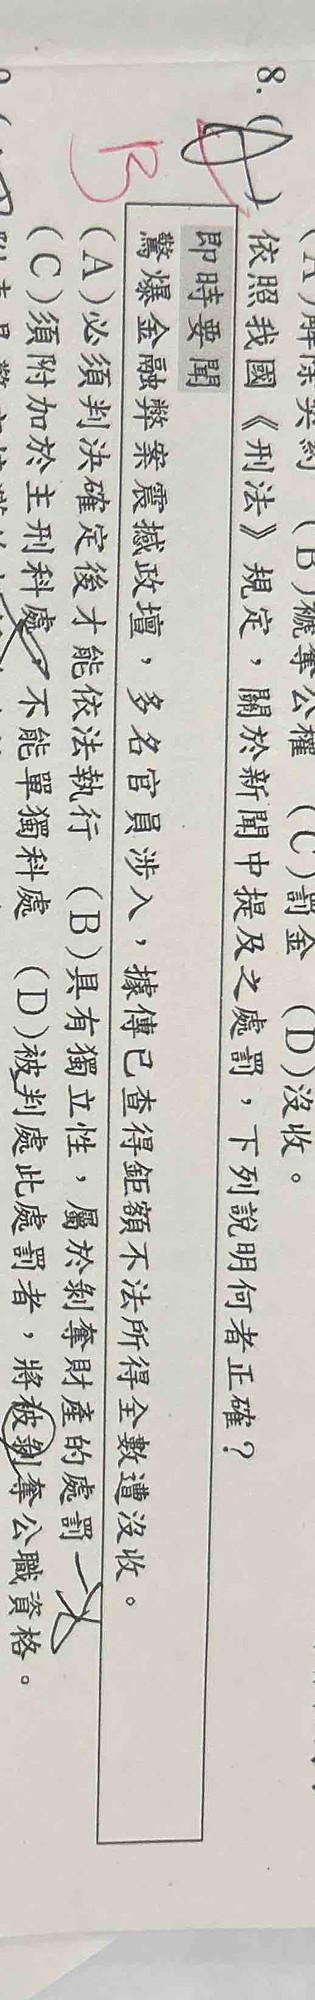 (A)解除契約 (B)褫奪公權 (C)罰金 (D)沒收。
8. 依照我國《刑法》規定，關於新聞中提及之處罰，下列說明何者正確？
B
即時要聞
驚爆金融弊案震撼政壇，多名官員涉入，據傳已查得鉅額不法所得全數遭沒收。
(A)必須判決確定後才能依法執行 (B)具有獨立性，屬於剝奪財產的處罰
(C)須附加於主刑科處，不能單獨科處 (D)被判處此處罰者，將被剝奪公職資格。